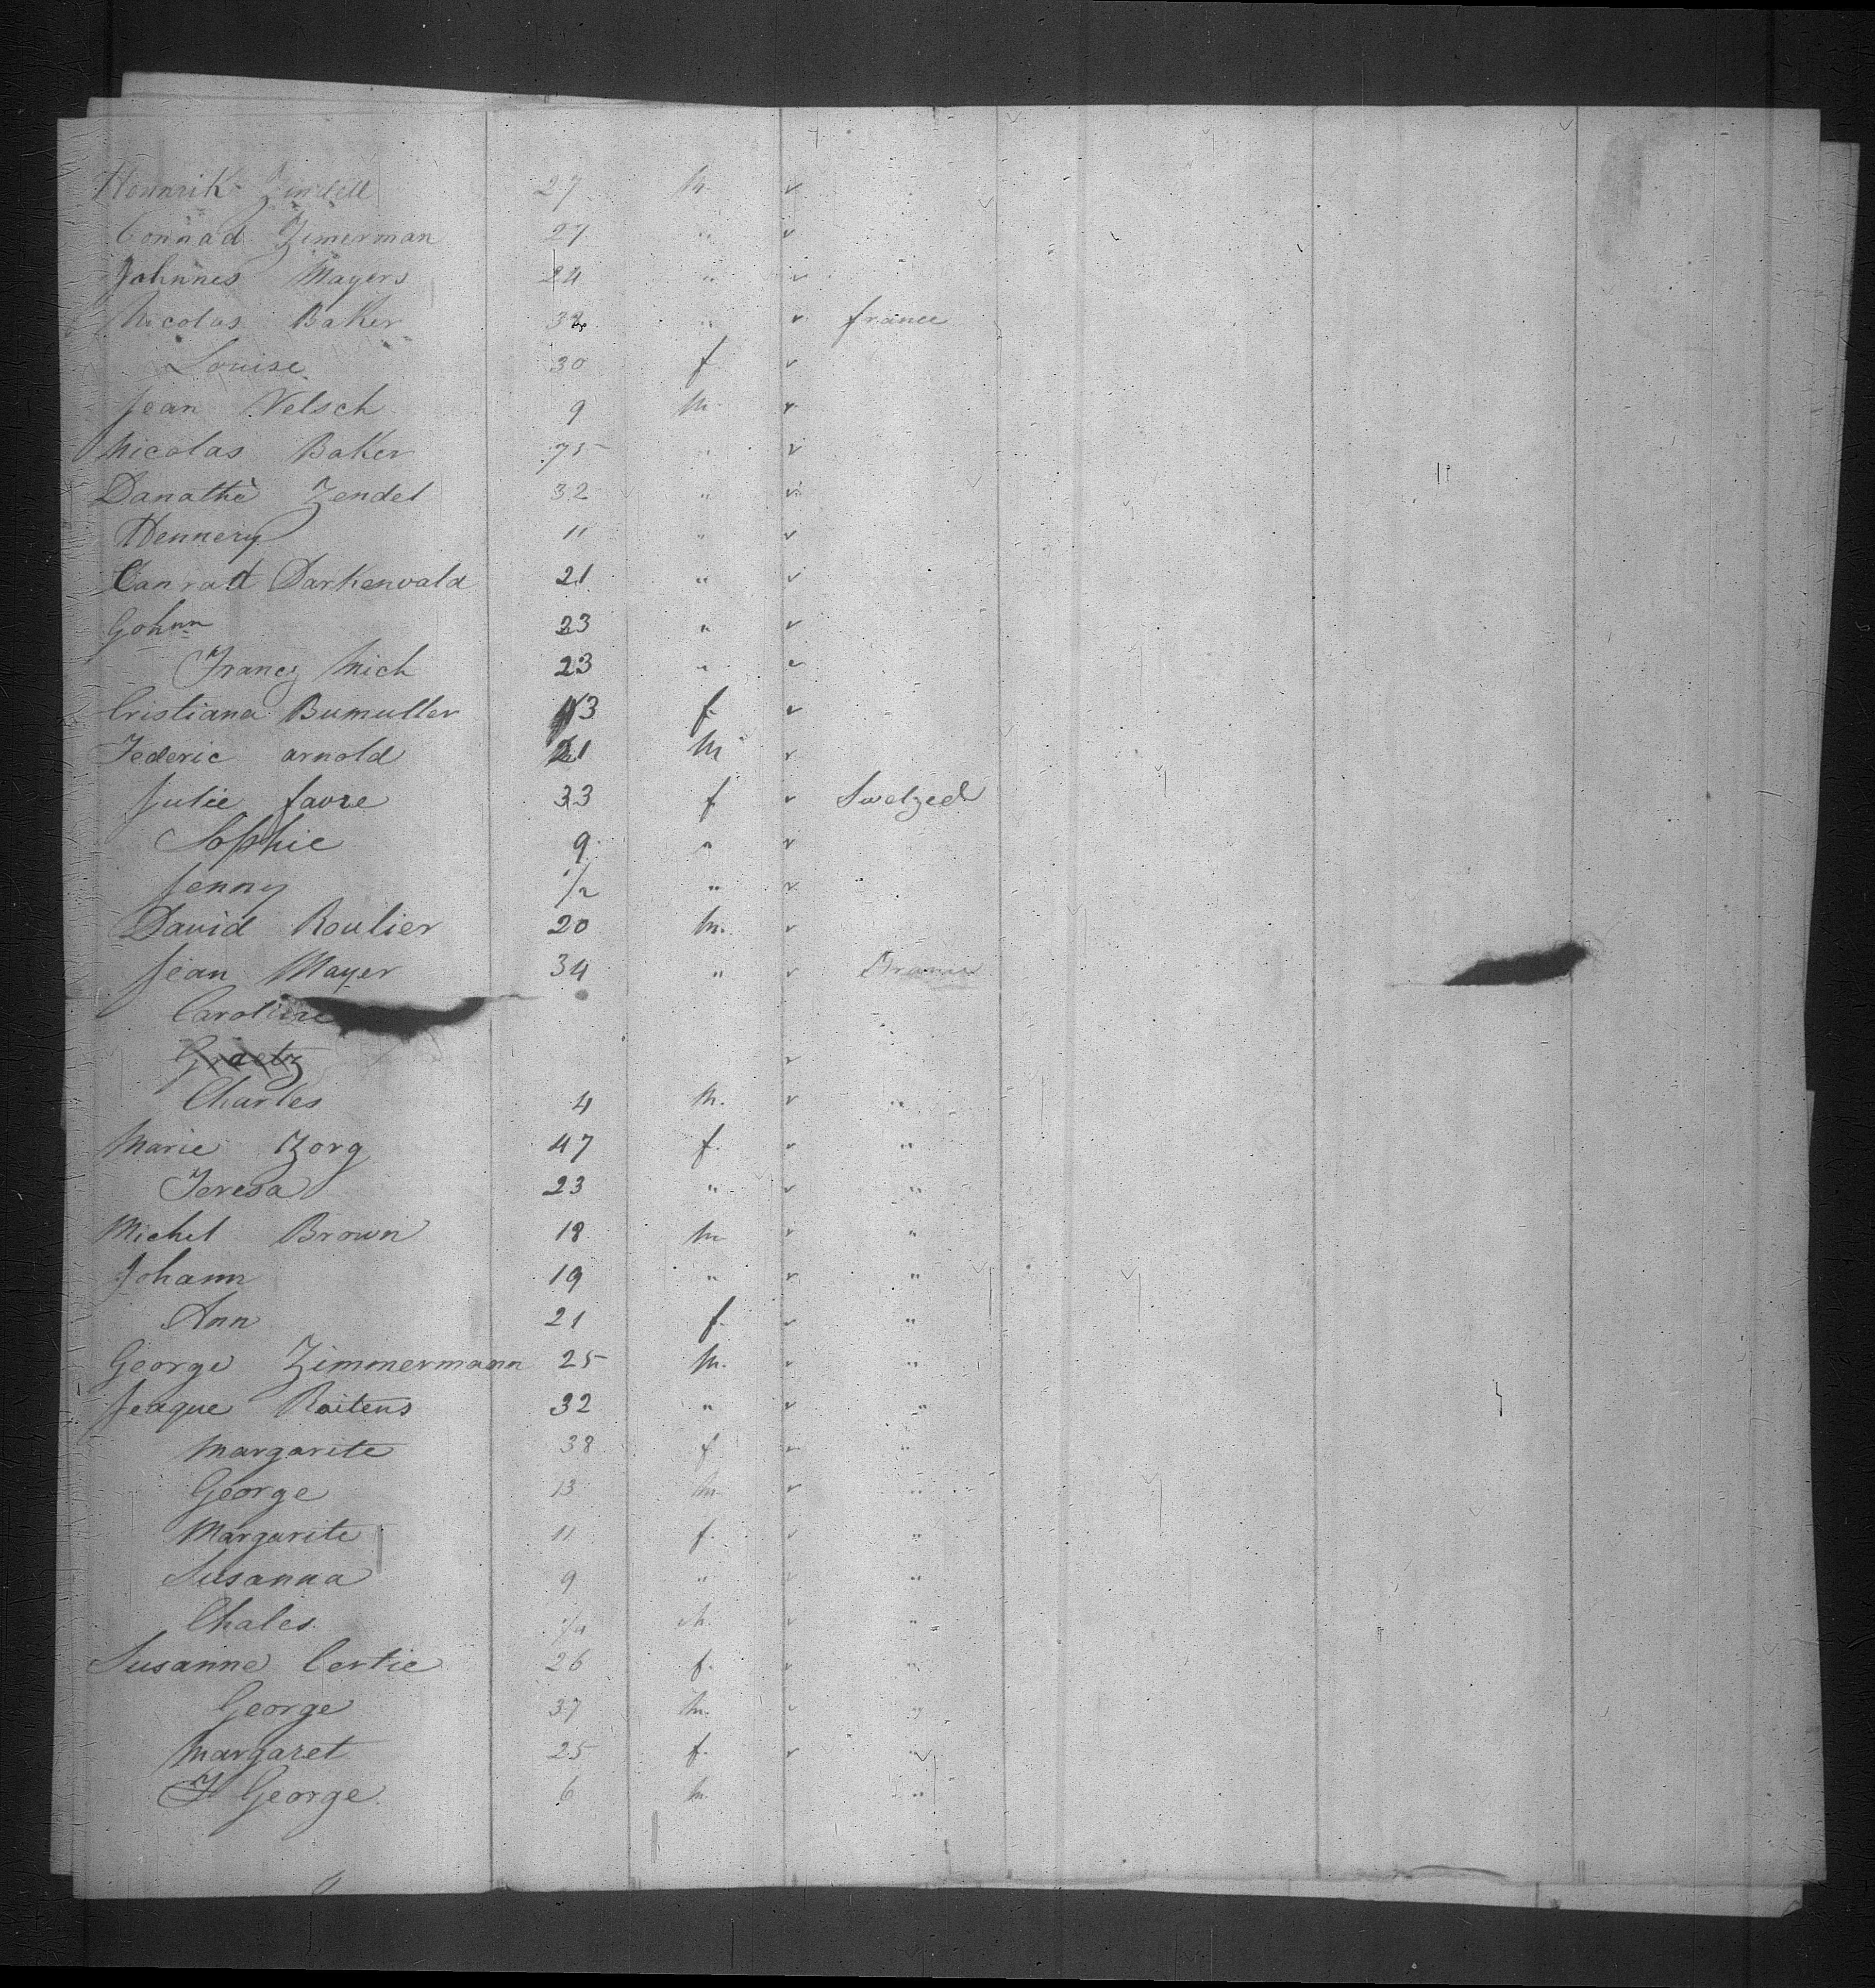 Hennrik Zendell 27 m. v
Connad Zimerman 27 " v
Johnnes Mayers 24 " v
Nicolas Baker 32 " v france
Louise 30 f v
Jean Velsch 9 m. v
Nicolas Baker 75 " v
Danathè Zendel 32 " v
Hennery 11 " v
Canratt Darkenvald 21 " v
Gohnn 23 " v
Francz Mich 23 " v
Cristiana Bumuller 13 f v
Federic arnold 21 m v
Julie favre 33 f v Swelzed
Sophie 9 " v
Jenny 1/2 " v
David Roulier 20 m. v
Jean Mayer 34 " v France
Caroline
Graetz v
Charles 4 m. v "
Marie Zorg 47 f. v "
Teresa 23 " v "
Michel Brown 18 m v "
Johann 19 " v "
Ann 21 f. v "
George Zimmermann 25 m. v "
Jeaque Raitens 32 " v "
Margarite 38 f v "
George 13 m v "
Margarite 11 f. v "
Susanna 9 " v "
Chales 1/4 m. v "
Susanne Certie 26 f. v "
George 37 m. v "
Margaret 25 f. v "
J George 6 m. "